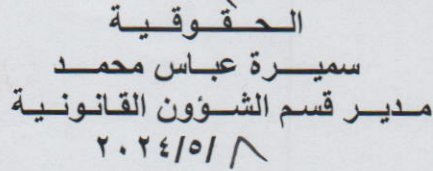 الحقوقية
سميرة عباس محمد
مدير قسم الشؤون القانونية
٢٠٢٤/٥/٨